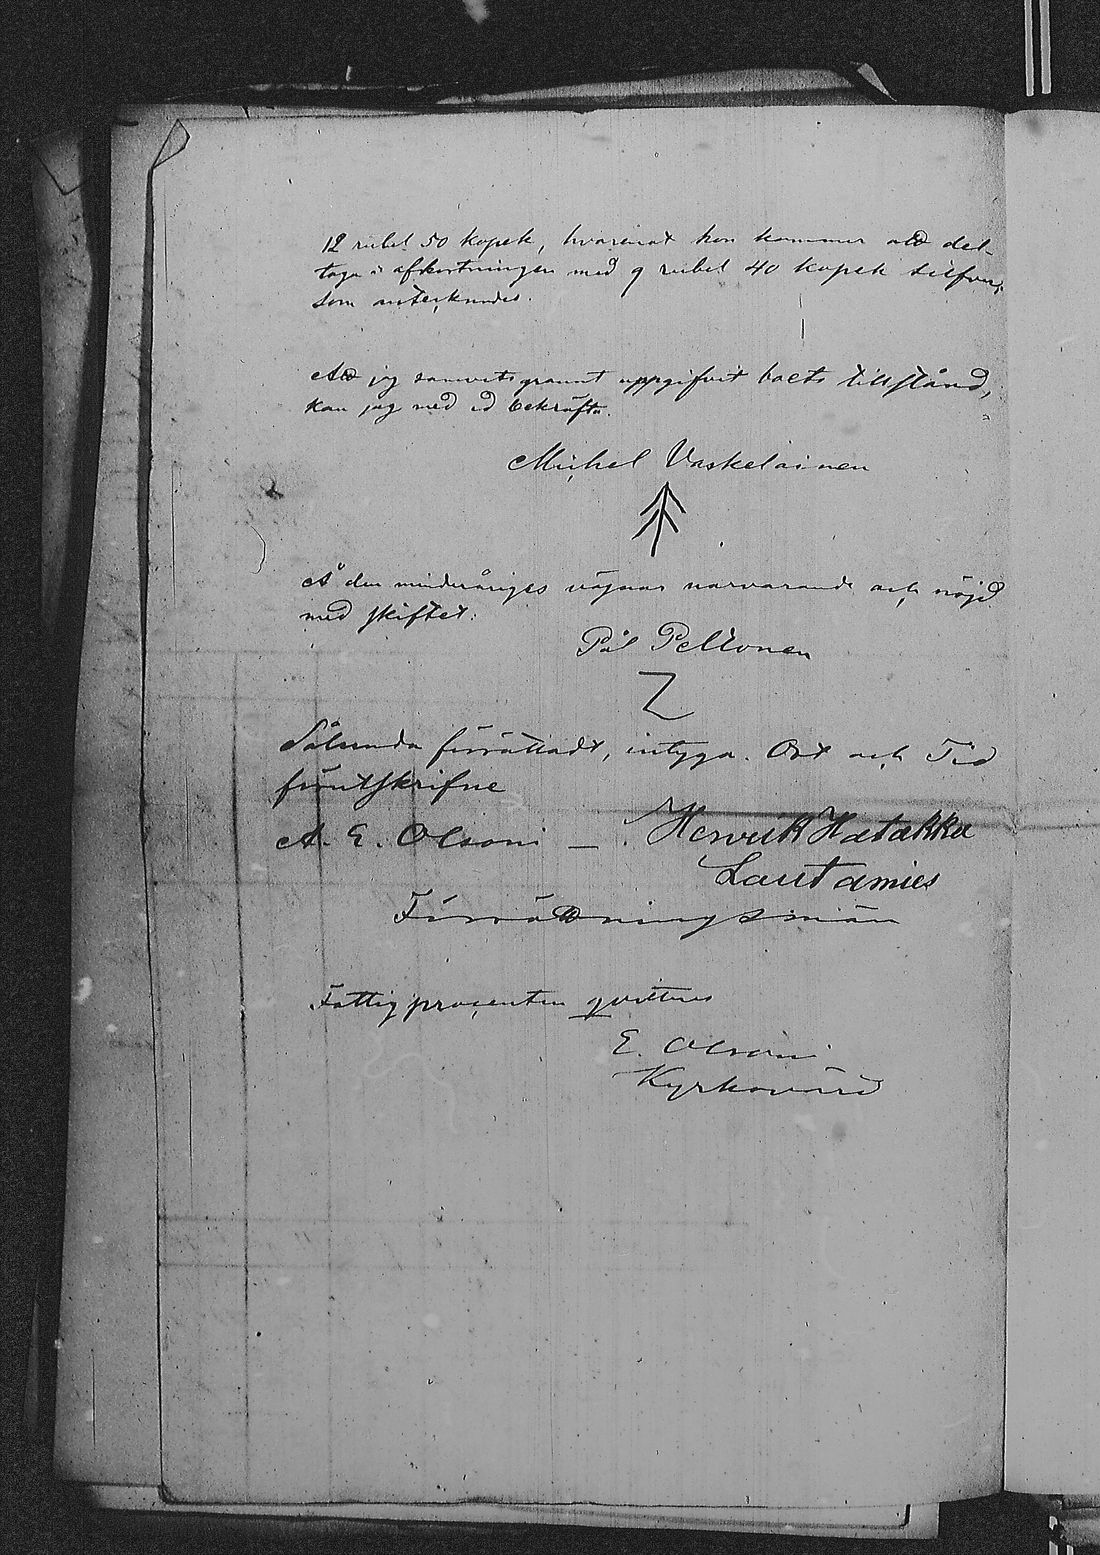 12 rubel 50 kopek, hvaremot hon kommer att del-
taga i afkortningen med 9 rubel 40 kopek silfver,
som antecknades.
Att jag samvetsgrannt uppgifvit boets tillstånd,
kan jag med ed bekräfta.
Michel Vaskelainen
Å den minderåriges vägnar närvarande och nöjd
med skiftet:
Pål Peltonen
Sålunda förrättadt, intyga. Ort och Tid
förutskrifne
A. E. Olsoni — Henrik Hatakka
Lautamies
Förrättningsmän
Fattigprocenten qvitteras
E. Olsoni
Kyrkovärd